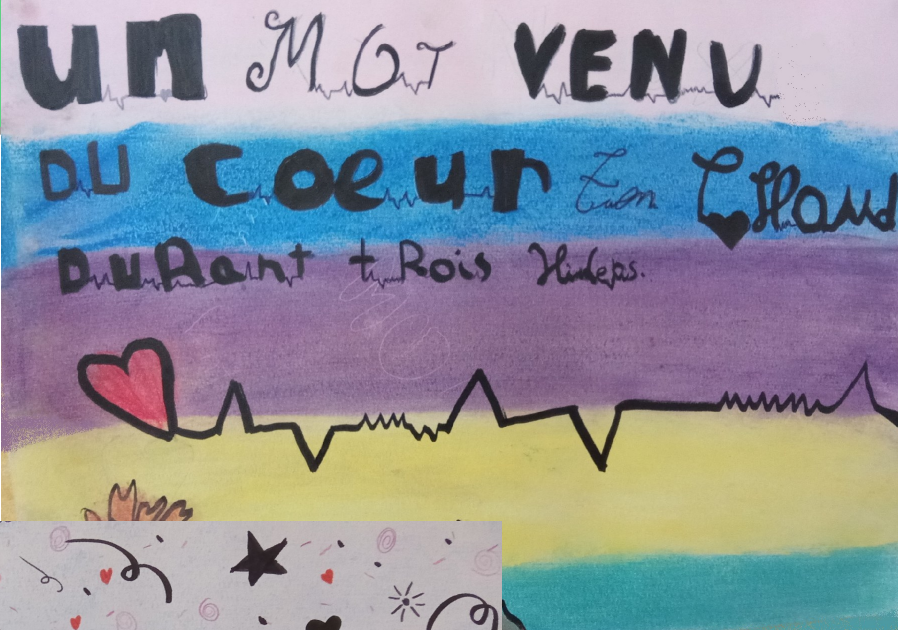 un MOT VENU
DU coeur CHaud
DuRant tRois Hivers.